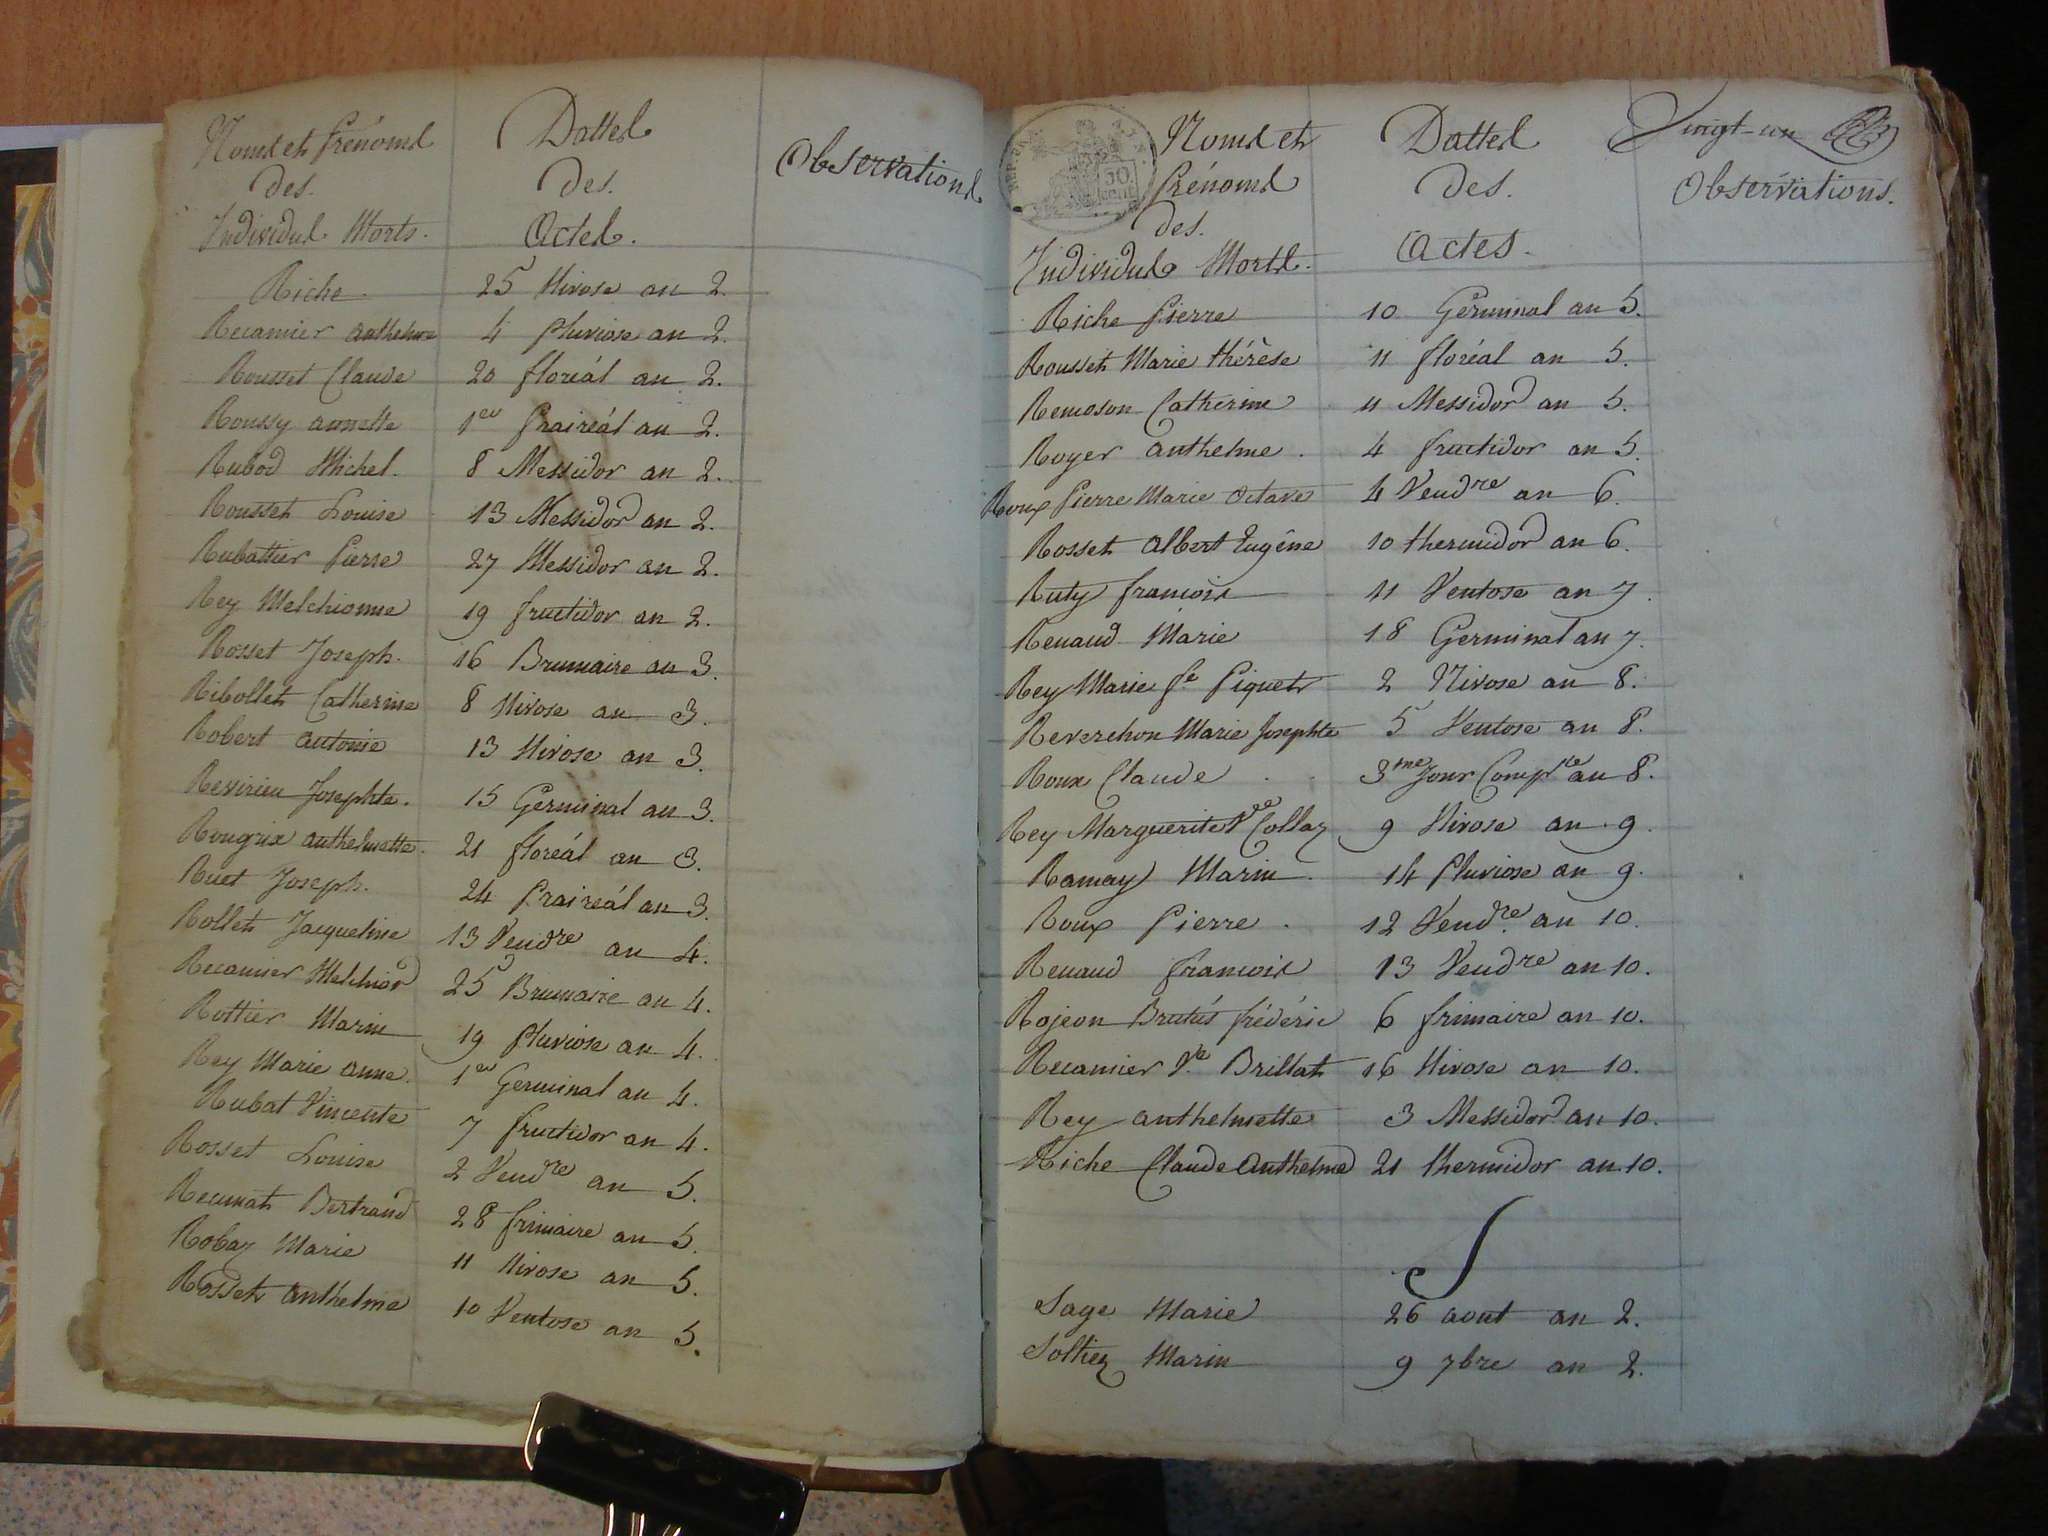 Noms et Prénoms
des
Individus Morts.
Dattes
des
Actes.
Observations
Riche 25 Nivose an 2.
Recamier anthelme 4 Pluviose an 2.
Rousset Claude 20 floréal an 2.
Roussy annette 1er Prairéal an 2.
Rubod Michel. 8 Messidor an 2.
Rousset Louise 13 Messidor an 2.
Rubattier Pierre 27 Messidor an 2.
Rey Melchionne 19 fructidor an 2.
Rosset Joseph. 16 Brumaire an 3.
Ribollet Catherine 8 Nivose an 3.
Robert antoine 13 Nivose an 3.
Revirieu Josephte. 15 Germinal an 3.
Rougrix anthelmette. 21 floréal an 3.
Ruet Joseph. 24 Prairéal an 3.
Rollet Jacqueline 13 Vendre an 4.
Recamier Melchior 25 Brumaire an 4.
Rottier Marin 19 Pluviose an 4.
Rey Marie anne. 1er Germinal an 4.
Rubat Vincente 7 fructidor an 4.
Rosset Louise 2 Vendre an 5.
Bertrand 28 frimaire an 5.
Robaz Marie 11 Nivose an 5.
Rosset anthelme 10 Ventose an 5.
Vingt-un
Noms et
Prénoms
des.
Individus Morts.
Dattes
des.
Actes.
Observations.
Riche Pierre 10 Germinal an 5.
Rousset Marie thérèse 11 floréal an 5.
Remoson Catherine 11 Messidor an 5.
Royer anthelme. 4 fructidor an 5.
Roux Pierre Marie Octave 4 Vendre an 6.
Rosset albert Eugêne 10 thermidor an 6.
Ruty francois 11 Ventose an 7.
Renaud Marie 18 Germinal an 7.
Rey Marie fe Piquet 2 Nivose an 8.
Reverchon Marie Josephte 5 Ventose an 8.
Roux Claude 3me Jour Comple an 8.
Rey Marguerite Ve Collaz 9 Nivose an 9.
Ramay Marin 14 Pluviose an 9.
Roux Pierre. 12 Vendre an 10.
Renaud francois 13 Vendre an 10.
Rojeon Brutus frédéric 6 frimaire an 10.
Recamier Ve Brillat 16 Nivose an 10.
Rey anthelmette 3 Messidor an 10.
Riche Claude Anthelme 21 thermidor an 10.
S
Sage Marie 26 aout an 2.
Soltiez Marin 9 7bre an 2.